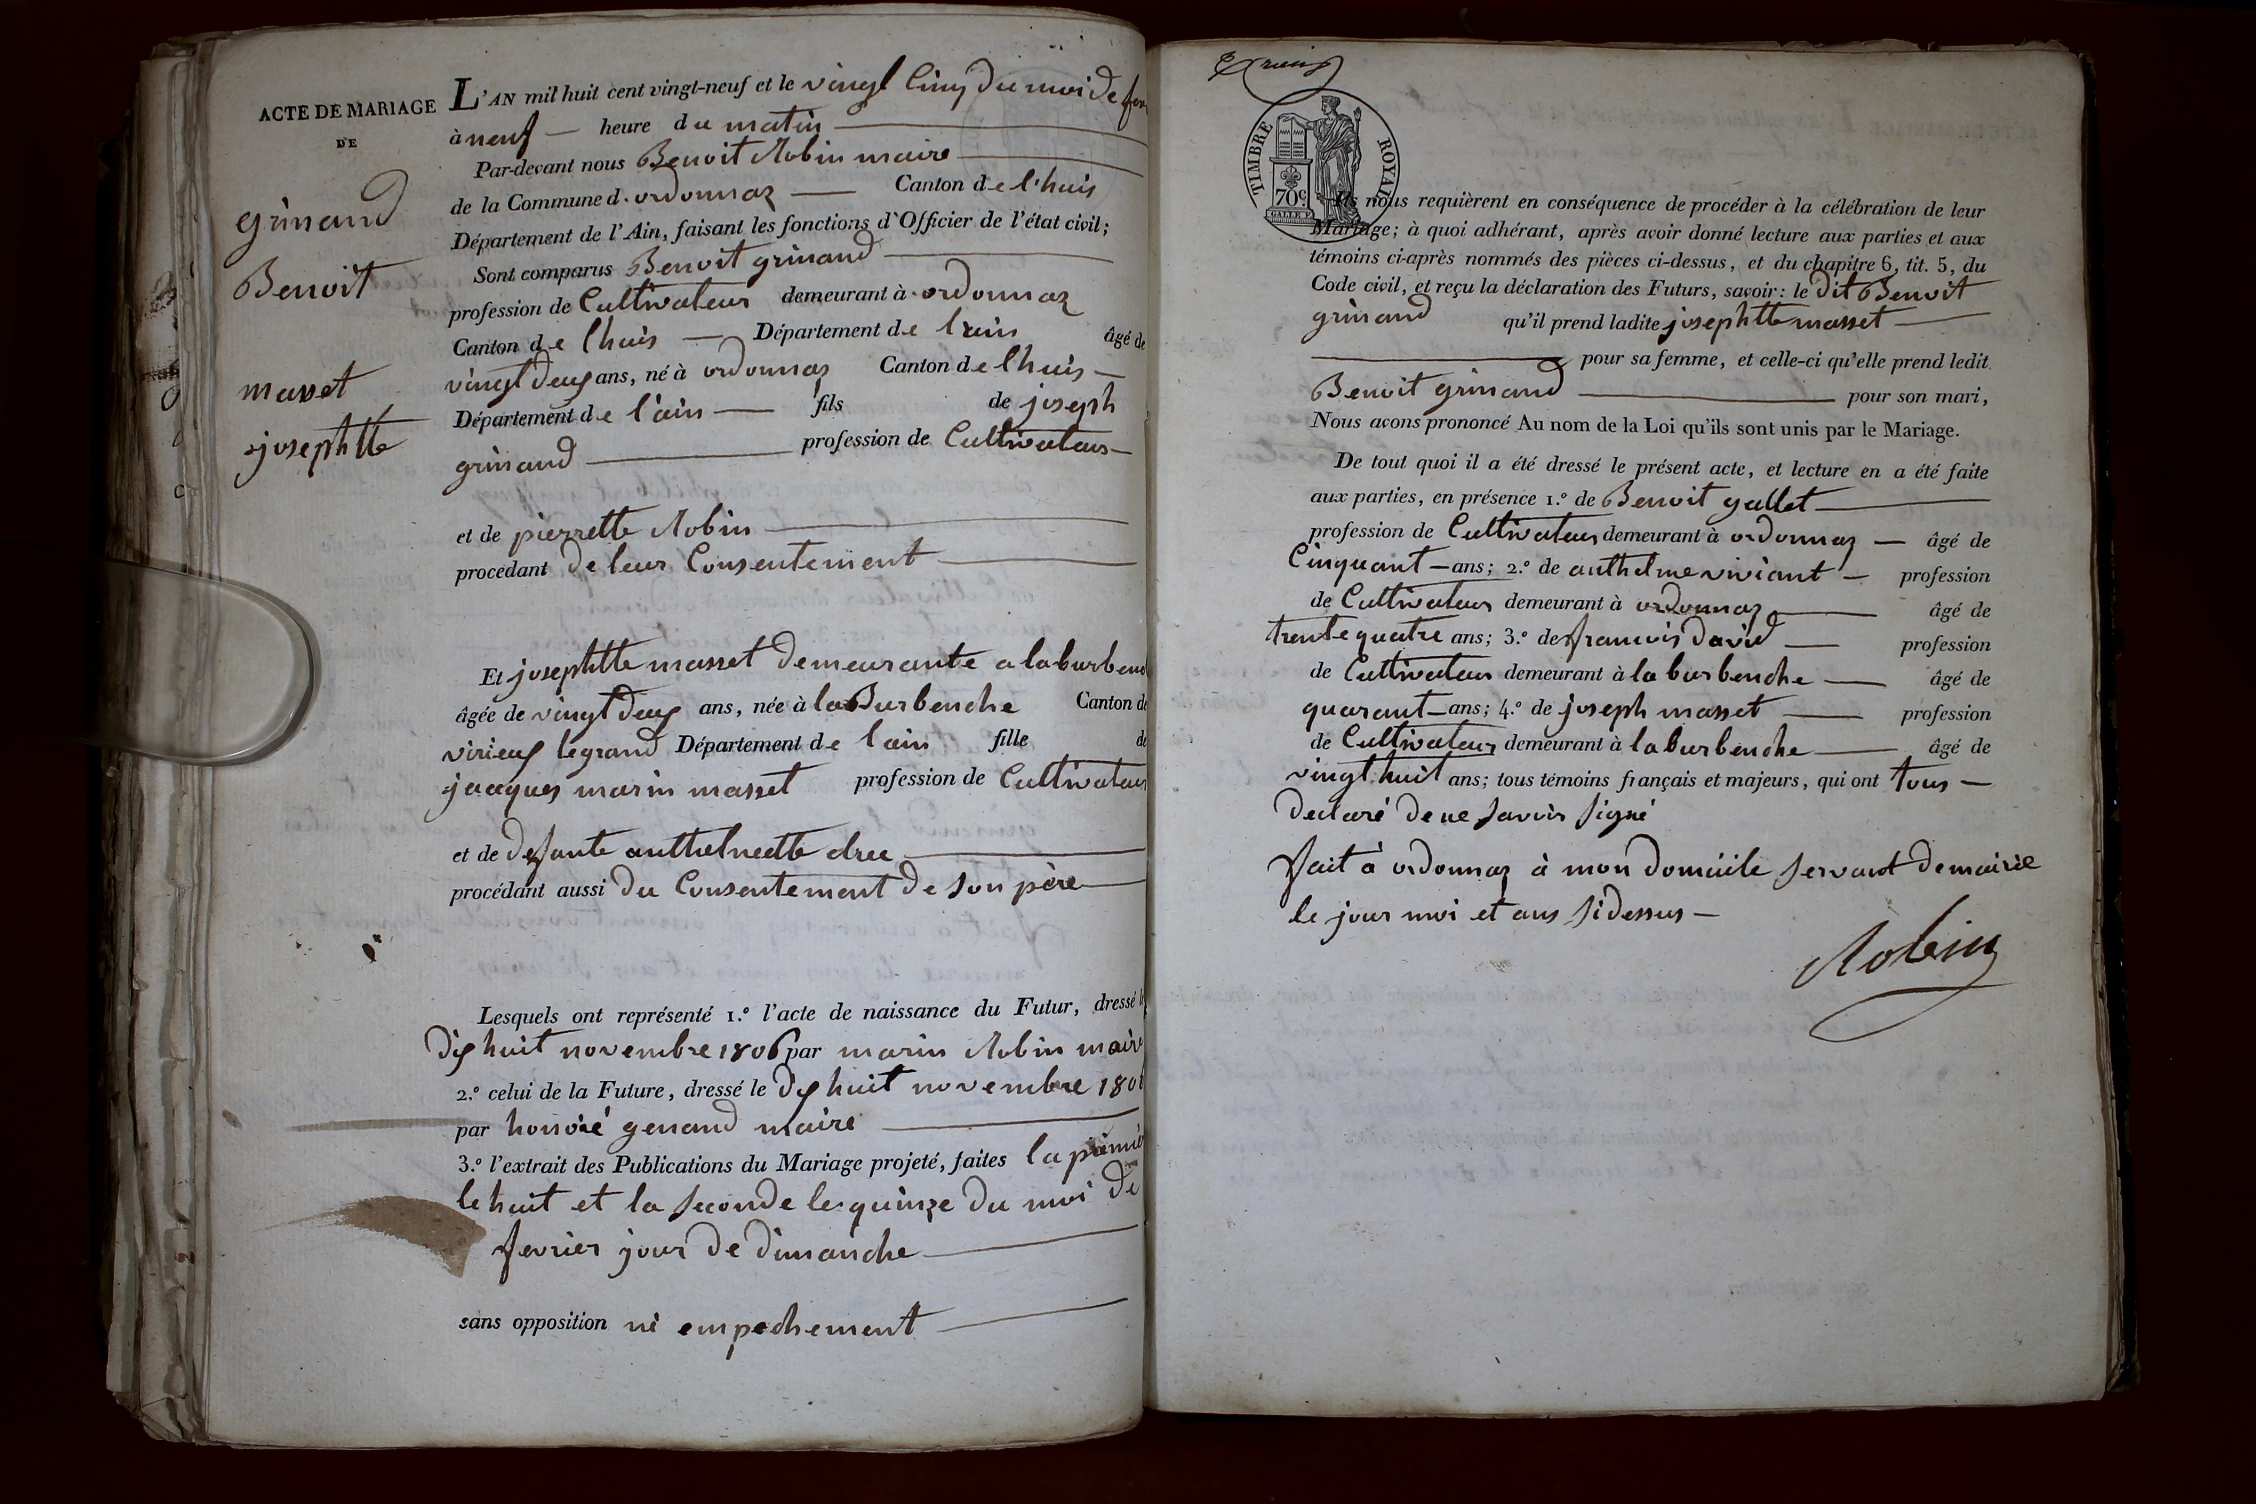 ACTE DE MARIAGE
DE
grinand
Benoit
masset
josephtte
L'AN mil huit cent vingt-neuf et le vingt cinq du moi de
à neuf heure du matin
Par-devant nous Benoit Robin maire
de la Commune d. ordonnaz Canton de l'huis
Département de l'Ain, faisant les fonctions d'Officier de l'état civil;
Sont comparus Benoit grinand
profession de Cultivateur demeurant à ordonnaz
Canton de lhuis Département de lain âgé de
vingt deux ans, né à ordonnaz Canton de lhuis
Département de l'ain fils de joseph
grinand profession de Cultivateur
et de pierrette Robin
procédant de leur Consentement
Et josephtte masset demeurante a la burbenc
âgée de vingt deux ans, née à la Burbenche Canton de
virieux legrand Département de lain fille de
jacques marin masset profession de Cultivateur
et de defante druc
procédant aussi du Consentement de son père
Lesquels ont représenté 1.° l'acte de naissance du Futur, dressé le
dix huit novembre 1806 par marin Robin maire
2.° celui de la Future, dressé le dix huit novembre 180
par honoré genand maire
3.° l'extrait des Publications du Mariage projeté, faites la premiè
le huit et la seconde le quinze du moi de
fevrier jour de dimanche
sans opposition ni empechement
TIMBRE ROYAL
70c.
Ils nous requièrent en conséquence de procéder à la célébration de leur
Mariage; à quoi adhérant, après avoir donné lecture aux parties et aux
témoins ci-après nommés des pièces ci-dessus, et du chapitre 6, tit. 5, du
Code civil, et reçu la déclaration des Futurs, savoir: le dit Benoit
grinand qu'il prend ladite josephtte masset
pour sa femme, et celle-ci qu'elle prend ledit
Benoit grinand pour son mari,
Nous avons prononcé Au nom de la Loi qu'ils sont unis par le Mariage.
De tout quoi il a été dressé le présent acte, et lecture en a été faite
aux parties, en présence 1.° de Benoit gallet
profession de Cultivateur demeurant à ordonnaz âgé de
Cinquant ans; 2.° de anthelme viviant profession
de Cultivateur demeurant à ordonnaz âgé de
trente quatre ans; 3.° de francois david profession
de Cultivateur demeurant à la burbenche âgé de
quarant ans; 4.° de joseph masset profession
de Cultivateur demeurant à la burbenche âgé de
vingt huit ans; tous témoins français et majeurs, qui ont tous
declaré de ne savoir signé
fait à ordonnaz à mon domicile servant demairie
le jour moi et ans sidessus
Robin